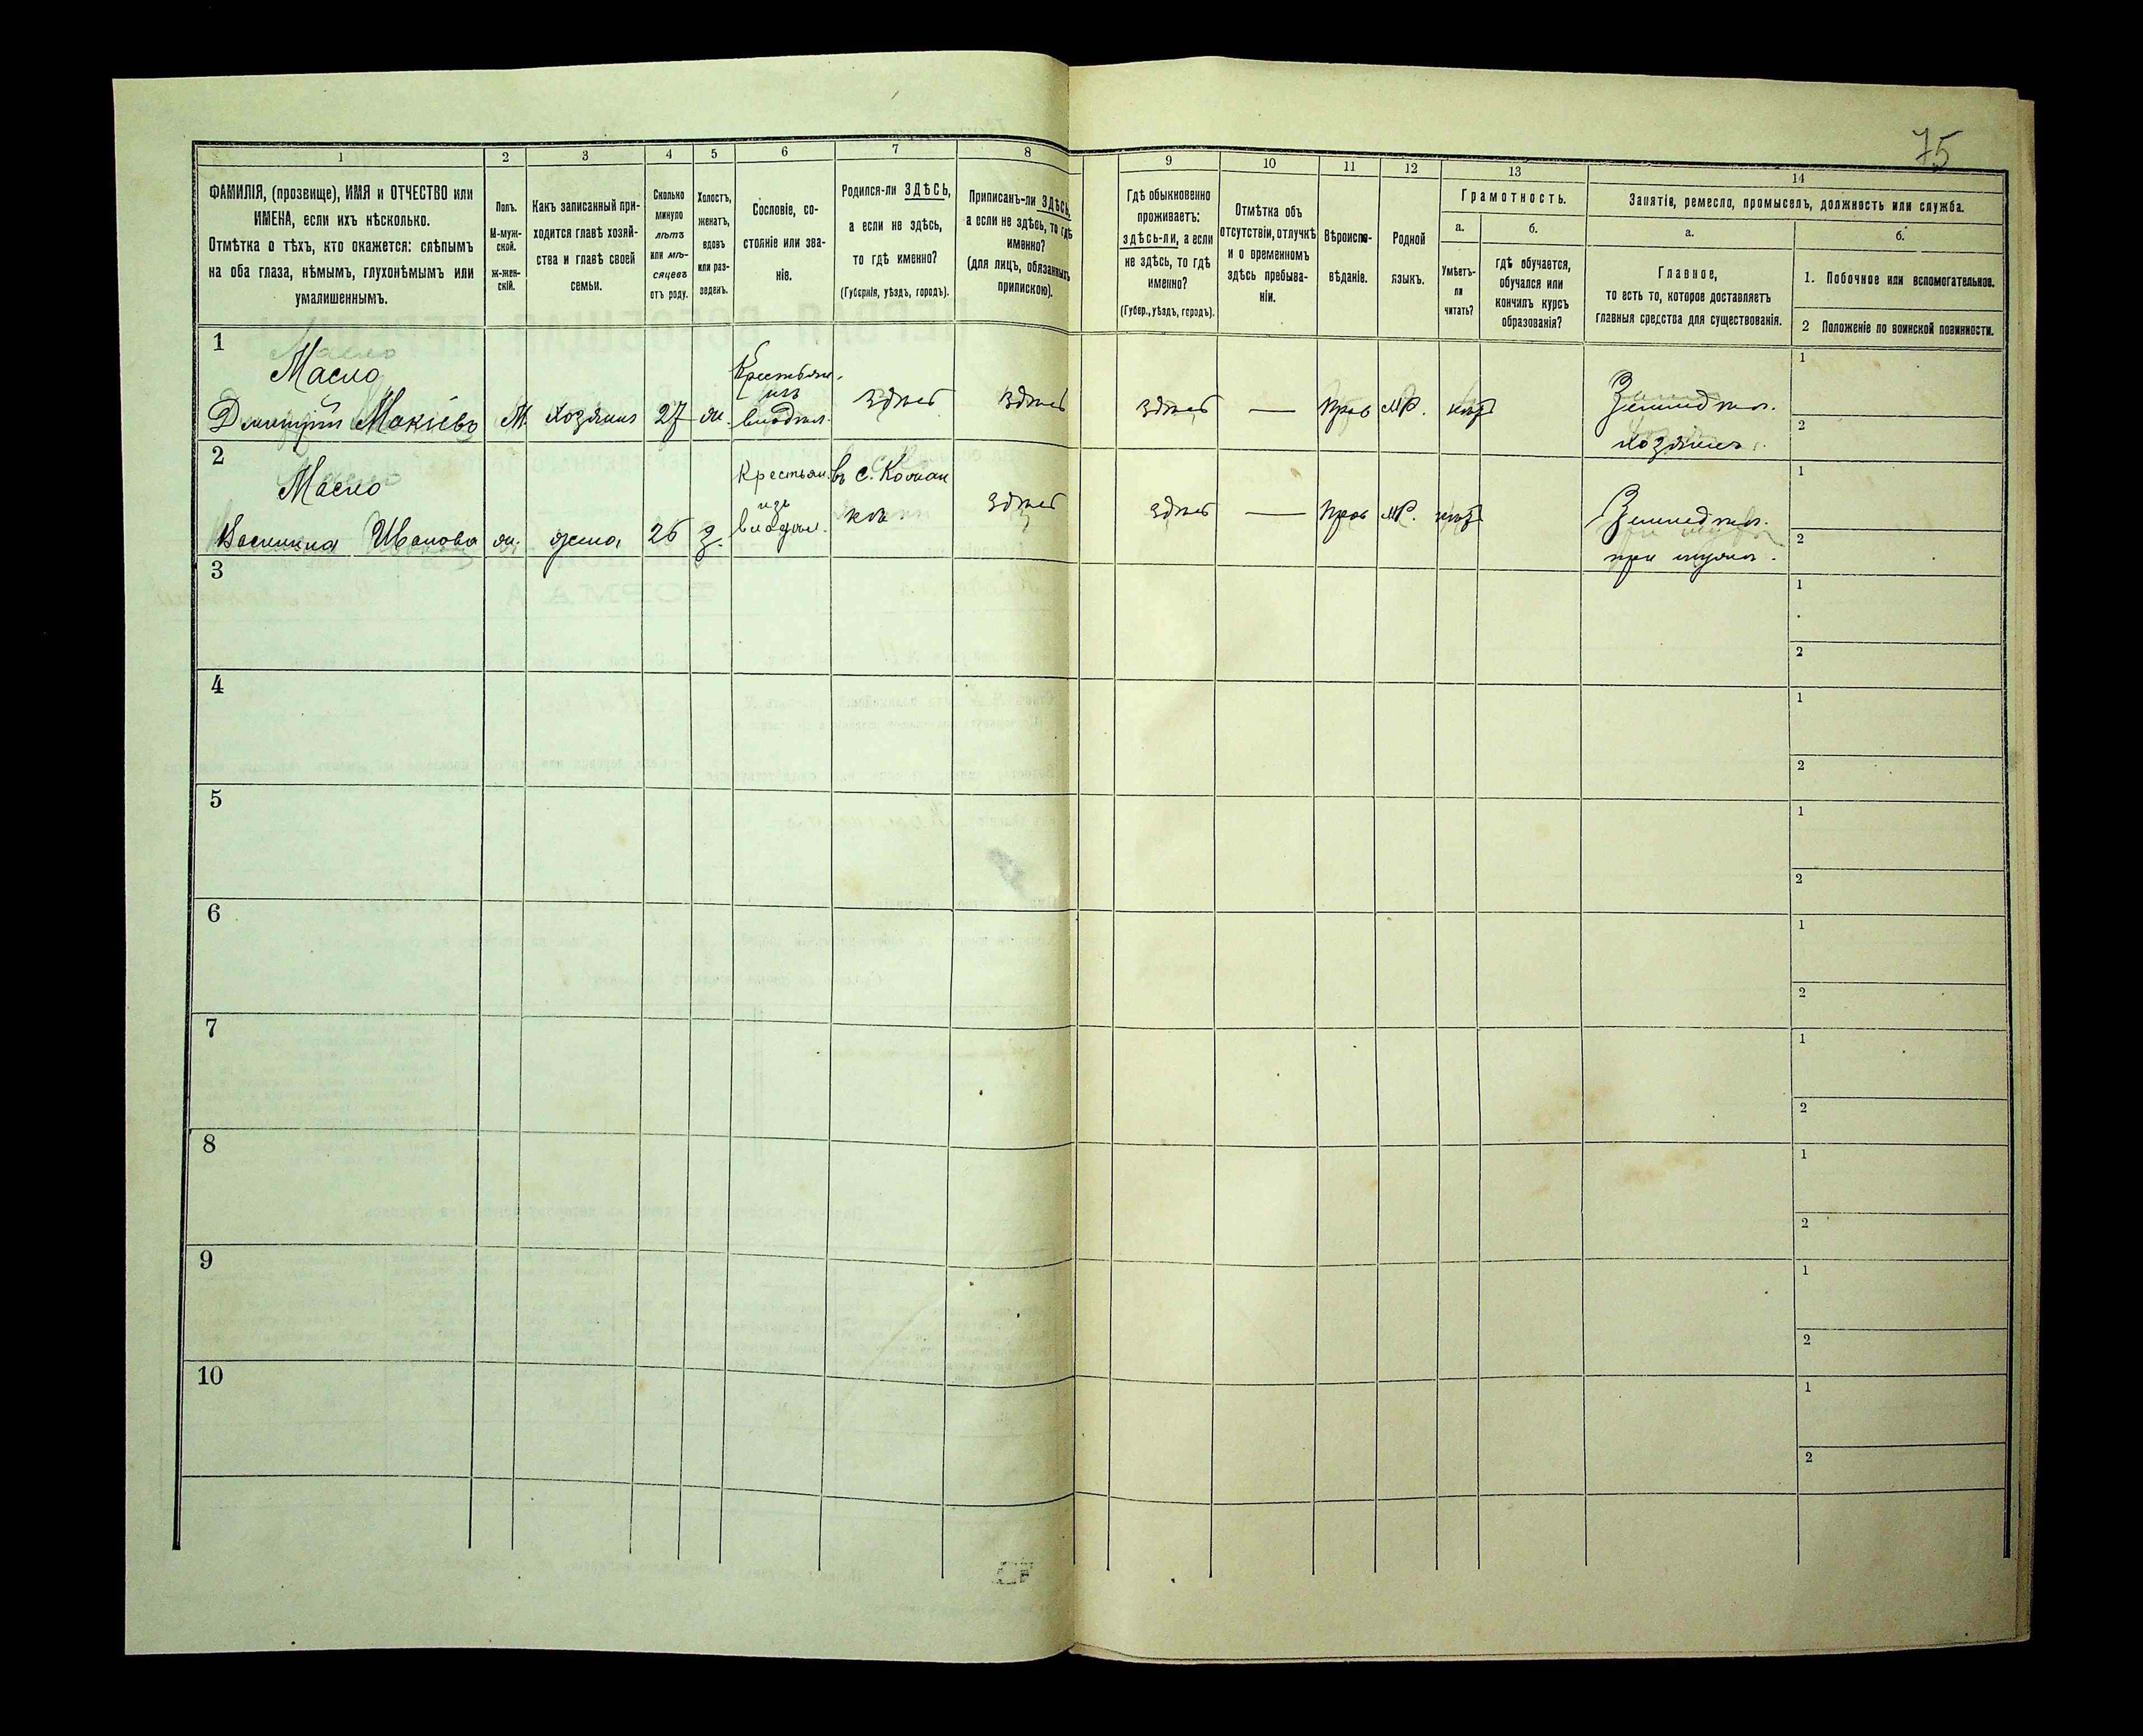 75
1
2
3
4
5
6
7
8
9
10
11
12
13
14
ФАМИЛІЯ, (прозвище), ИМЯ и ОТЧЕСТВО или
ИМЕНА, если ихъ нѣсколько.
Отмѣтка о тѣхъ, кто окажется: слѣпымъ
на оба глаза, нѣмымъ, глухонѣмымъ или
умалишеннымъ.
Полъ.
М-муж-
ской.
ж-жен-
скій.
Какъ записанный при-
ходится главѣ хозяй-
ства и главѣ своей
семьи.
Сколько
минуло
лѣтъ
или мѣ-
сяцевъ
отъ роду.
Холостъ,
женатъ,
вдовъ
или раз-
веденъ.
Сословіе, со-
стояніе или зва-
ніе.
Родился-ли ЗДѢСЬ,
а если не здѣсь,
то гдѣ именно?
(Губернія, уѣздъ, городъ).
Приписанъ-ли ЗДѢСЬ,
а если не здѣсь, то гдѣ
именно?
(для лицъ, обязанныхъ
припискою).
Гдѣ обыкновенно
проживаетъ:
здѣсь-ли, а если
не здѣсь, то гдѣ
именно?
(Губер., уѣздъ, городъ).
Отмѣтка объ
отсутствіи, отлучкѣ
и о временномъ
здѣсь пребыва-
ніи.
Вѣроиспо-
вѣданіе.
Родной
языкъ.
Грамотность.
а.
Умѣетъ-
ли
читать?
б.
гдѣ обучается,
обучался или
кончилъ курсъ
образованія?
Занятіе, ремесло, промыселъ, должность или служба.
а.
Главное,
то есть то, которое доставляетъ
главныя средства для существованія.
б.
1. Побочное или вспомогательное.
2 Положеніе по воинской повинности.
1
Масло
Дмитрій Мокіевъ
М.
хозяин
27
ж.
Крестьян.
изъ
владѣл.
здѣсь
здѣсь
здѣсь
—
Прав
МР.
нѣтъ
Землед
хозяинъ.
1
2
2
Масло
Василина Иванова
ж.
жена
26
з.
Крестьян.
изъ
владѣл.
въ с. Коман
здѣсь
здѣсь
—
Прав
МР.
нѣтъ
Землед
при мужѣ.
1
2
3
1
2
4
1
2
5
1
2
6
1
2
7
1
2
8
1
2
9
1
2
10
1
2